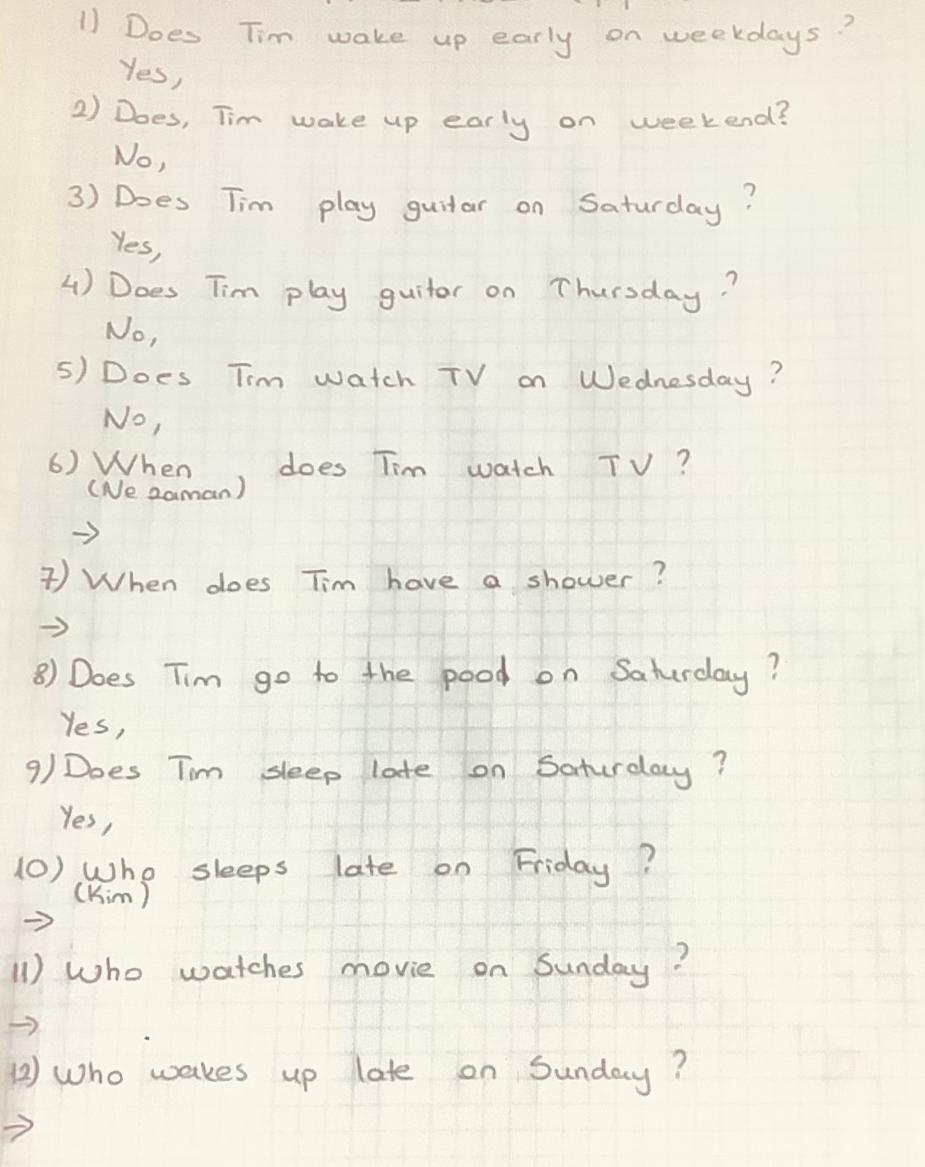 1) Does Tim wake up early on weekdays?
Yes,
2) Does, Tim wake up early on weekend?
No,
3) Does Tim play guitar on Saturday?
Yes,
4) Does Tim play guitar on Thursday?
No,
5) Does Tim watch TV on Wednesday?
No,
6) When does Tim watch TV?
(Ne zaman)
→
7) When does Tim have a shower?
→
8) Does Tim go to the pool on Saturday?
Yes,
9) Does Tim sleep late on Saturday?
Yes,
10) Who sleeps late on Friday?
(Kim)
→
11) Who watches movie on Sunday?
→
12) Who wakes up late on Sunday?
→